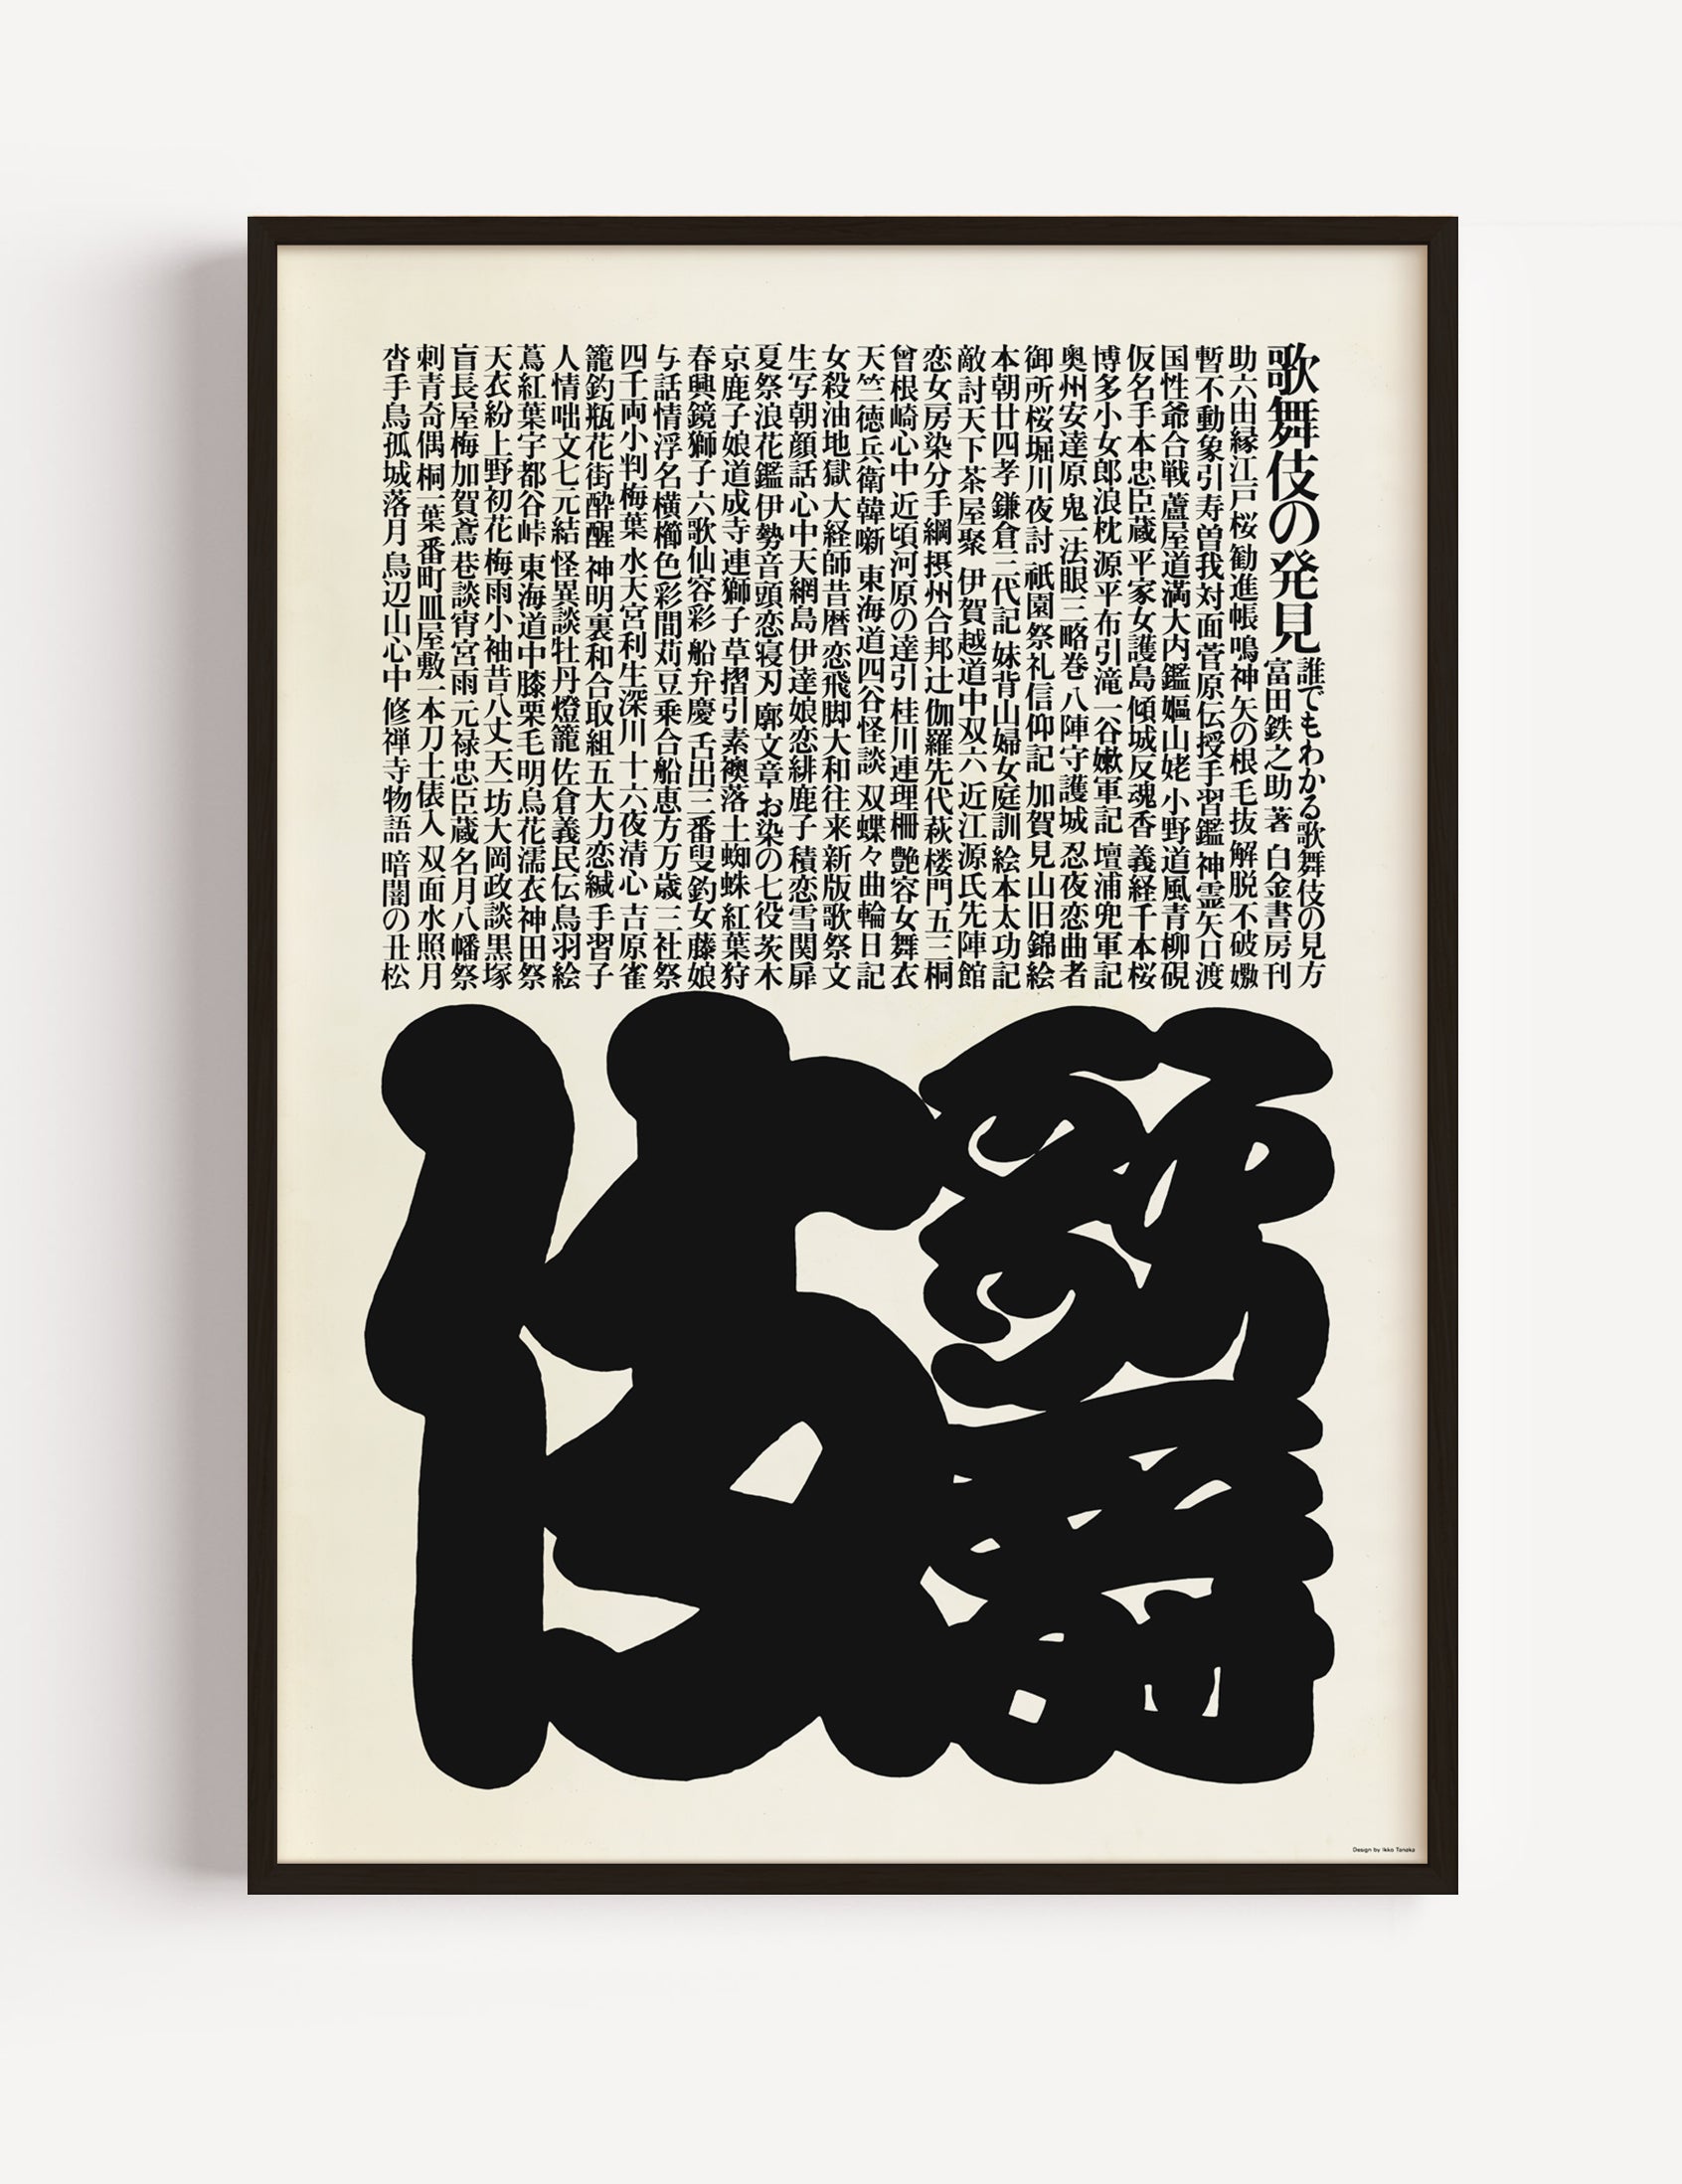 歌舞伎の発見
誰でもわかる歌舞伎の見方
富田鉄之助 著 白金書房刊
助六由縁江戸桜 勧進帳 鳴神 矢の根 毛抜 解脱 不破 嫐
暫 不動 象引 寿曽我対面 菅原伝授手習鑑 神霊矢口渡
国性爺合戦 蘆屋道満大内鑑 嫗山姥 小野道風青柳硯
仮名手本忠臣蔵 平家女護島 傾城反魂香 義経千本桜
博多小女郎浪枕 源平布引滝 一谷嫩軍記 壇浦兜軍記
奥州安達原 鬼一法眼三略巻 八陣守護城 忍夜恋曲者
御所桜堀川夜討 祇園祭礼信仰記 加賀見山旧錦絵
本朝廿四孝 鎌倉三代記 妹背山婦女庭訓 絵本太功記
敵討天下茶屋聚 伊賀越道中双六 近江源氏先陣館
恋女房染分手綱 摂州合邦辻 伽羅先代萩 楼門五三桐
曾根崎心中 近頃河原の達引 桂川連理柵 艶容女舞衣
天竺徳兵衛韓噺 東海道四谷怪談 双蝶々曲輪日記
女殺油地獄 大経師昔暦 恋飛脚大和往来 新版歌祭文
生写朝顔話 心中天網島 伊達娘恋緋鹿子 積恋雪関扉
夏祭浪花鑑 伊勢音頭恋寝刃 廓文章 お染の七役 茨木
京鹿子娘道成寺 連獅子 草摺引 素襖落 土蜘蛛 紅葉狩
春興鏡獅子 六歌仙容彩 船弁慶 舌出三番叟 釣女 藤娘
与話情浮名横櫛 色彩間苅豆 乗合船恵方万歳 三社祭
四千両小判梅葉 水天宮利生深川 十六夜清心 吉原雀
籠釣瓶花街酔醒 神明裏和合取組 五大力恋緘 手習子
人情咄文七元結 怪異談牡丹燈籠 佐倉義民伝 鳥羽絵
蔦紅葉宇都谷峠 東海道中膝栗毛 明烏花濡衣 神田祭
天衣紛上野初花 梅雨小袖昔八丈 天一坊大岡政談 黒塚
盲長屋梅加賀鳶 巷談宵宮雨 元禄忠臣蔵 名月八幡祭
刺青奇偶 桐一葉 番町皿屋敷 一本刀土俵入 双面水照月
沓手鳥孤城落月 鳥辺山心中 修禅寺物語 暗闇の丑松
歌舞伎
Design by Ikko Tanaka